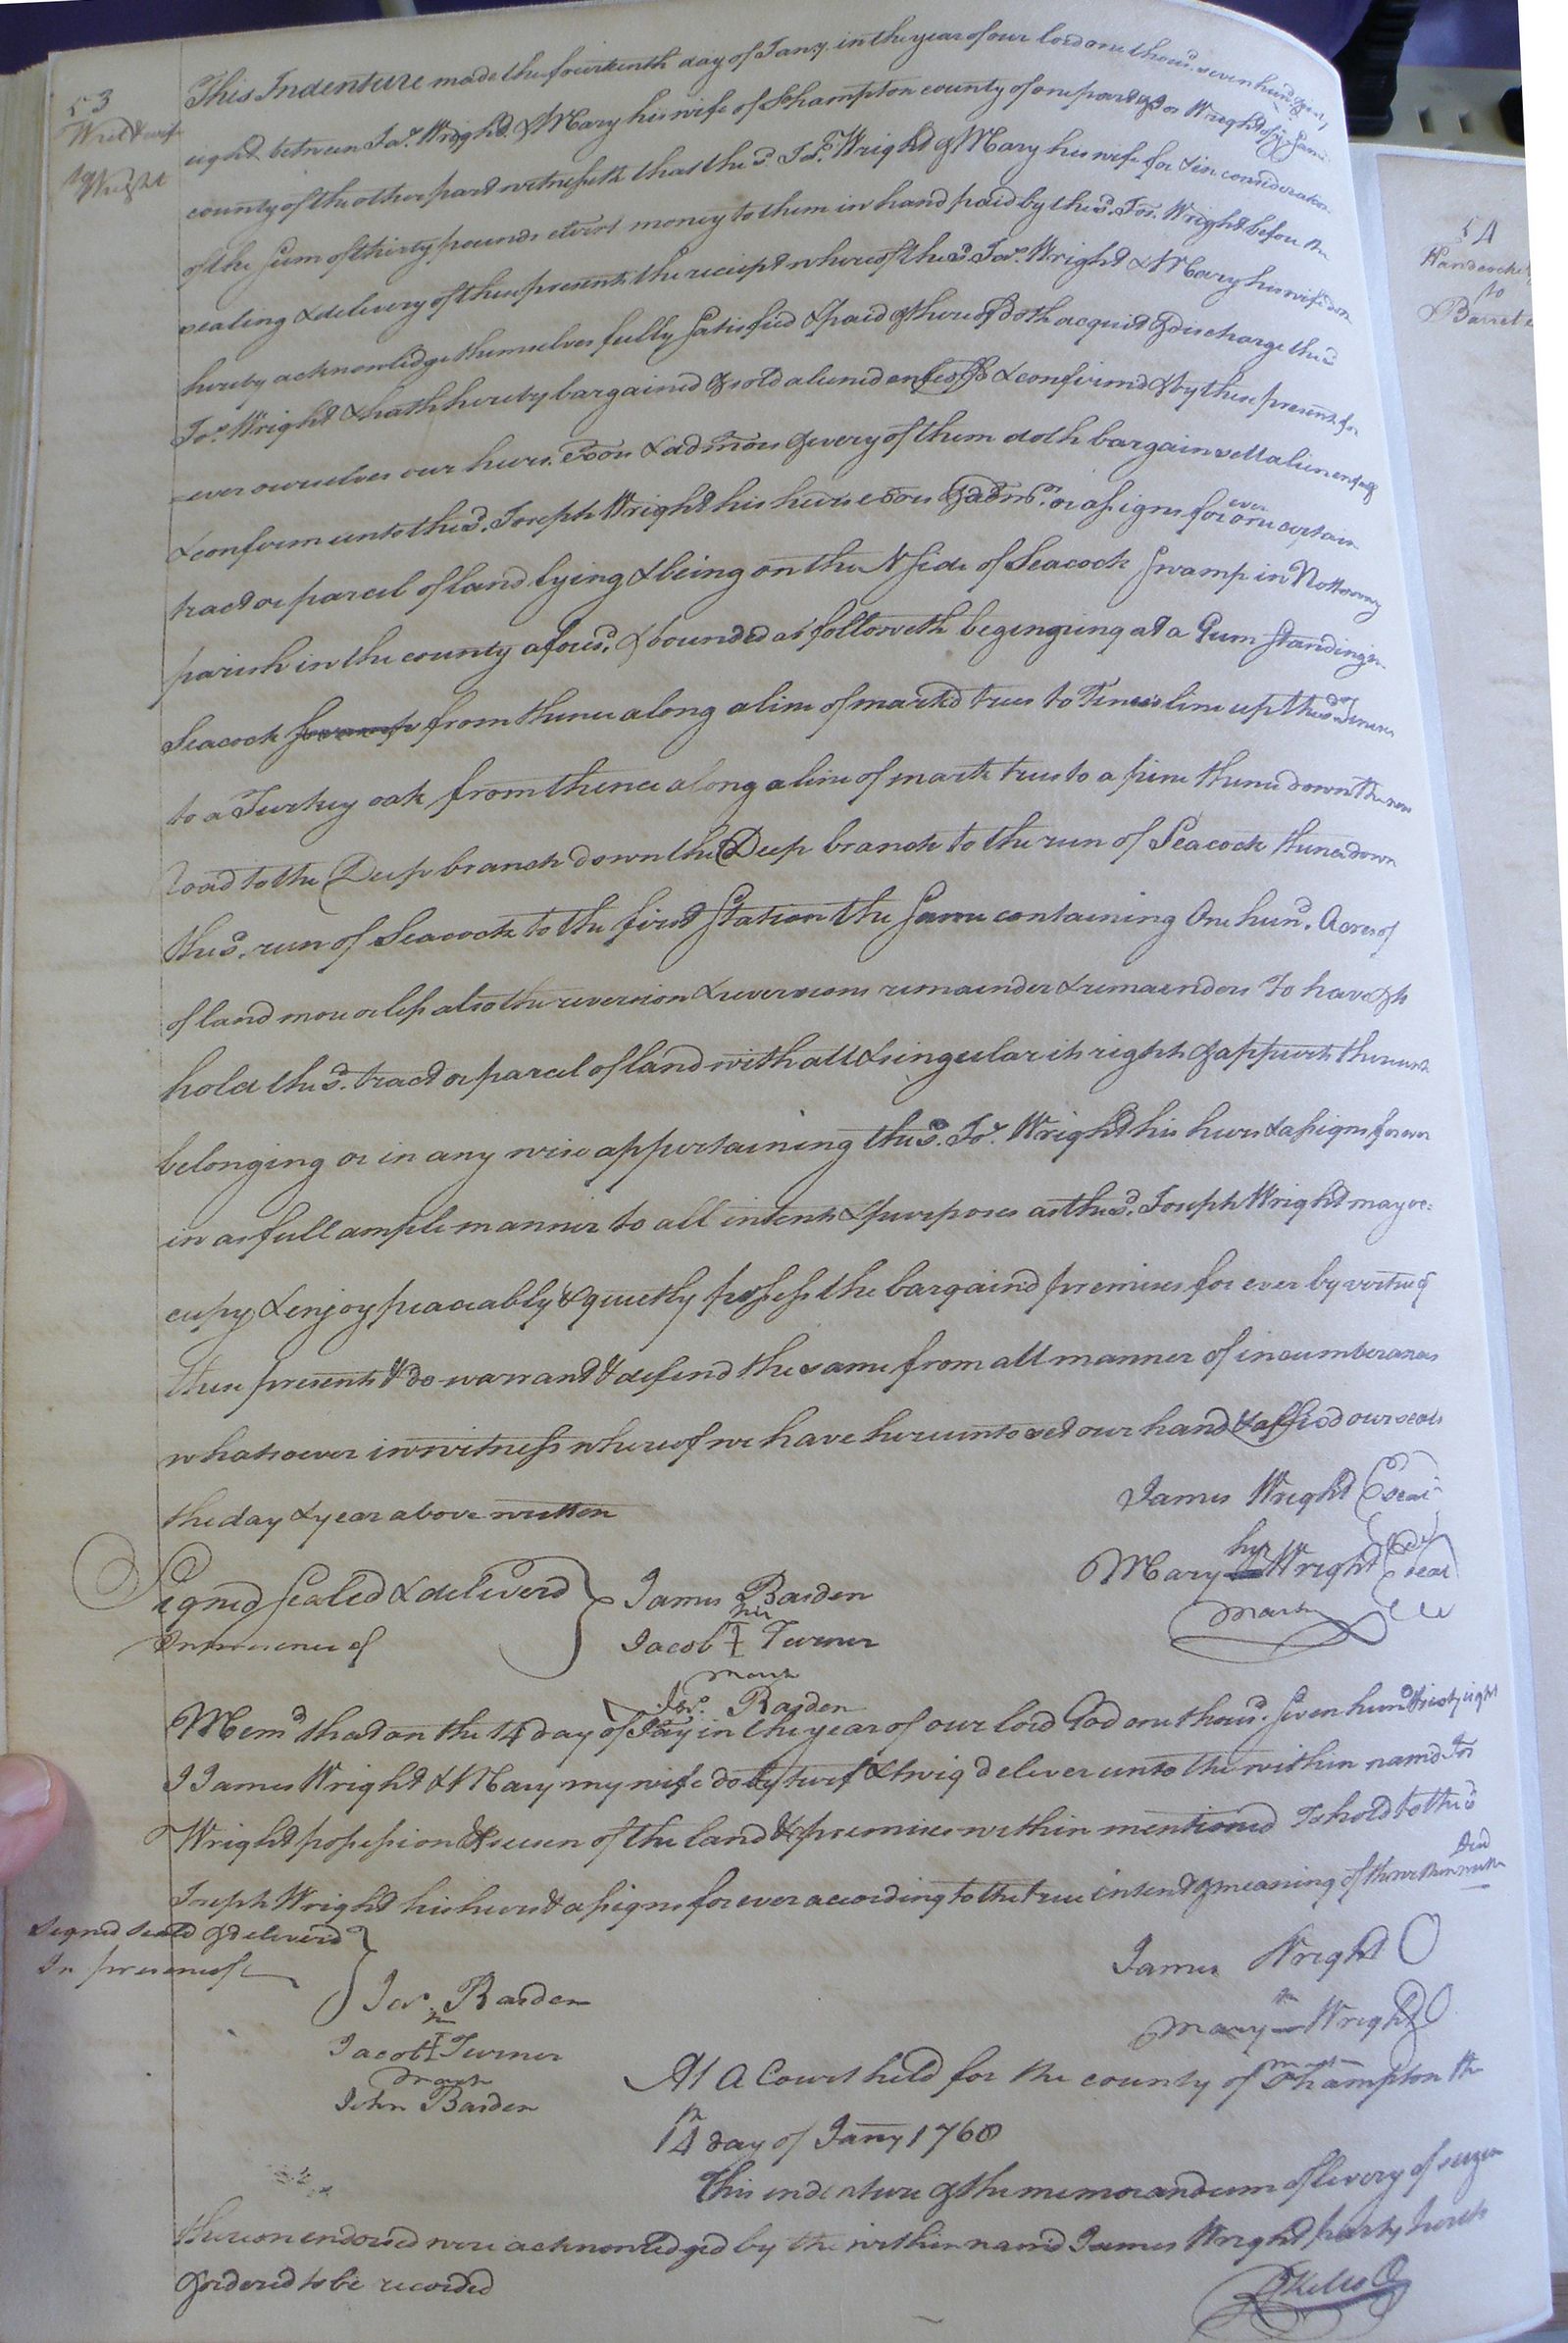 53
Wright & wife
to
Wright
This Indenture made the fourteenth day of Jany. in the year of our lord one thous.d seven hund.
eight between Ja.s Wright & Mary his wife of Sohampton county of one part & Jos Wright of same
county of the other part witnesseth that the s.d Ja.s Wright & Mary his wife for & in consideration
of the sum of thirty pounds money to them in hand paid by the s.d Jos. Wright before the
sealing & delivery of these presents the reciept whereof the s.d Ja.s Wright & Mary his wife doth
hereby acknowledge themselves fully satisfied & paid & thereof doth acquit & discharge the s.d
Jos. Wright & hath hereby bargained & sold aliened enfeoff'd & confirmd & by these presents for
=ever ourselves our heirs Exors & admors & every of them doth bargain sell alien enfeoff
& confirm unto the s.d Joseph Wright his heirs exors & admrs. or assigns for ever one certain
tract or parcel of land lying & being on the N side of Seacock swamp in Nottoway
parish in the county afores.d & bounded as followeth begengeing at a Gum standing in
Seacock from thence along a line of markd trees to line up the s.d
to a Turkey oak from thence along a line of markt trees to a pine thence down the new
road to the Deep branch down the Deep branch to the run of Seacock thence down
the s.d run of Seacock to the first station the same containing One hun.d Acres of
of land more or less also the reversion & reversions remainder & remainders To have & to
hold the s.d tract or parcel of land with all & singular its rights & appurts thereunto
belonging or in any wise appertaining the s.d Jos. Wright his heirs & assigns forever
in as full ample manner to all intents & purposes as the s.d Joseph Wright may oc=
cupy & enjoy peaceably & quietly possess the bargaind premises for ever by vertue of
these presents & do warrant & defend the same from all manner of incumberances
whatsoever in witness whereof we have hereunto set our hand & affixd our seals
the day & year above written
James Wright Seal
her
Mary Wright Seal
mark
Signed sealed & deliverd
In presence of
James Barden
his
Jacob I Turner
mark
Jos. Barden
Mem.d that on the 14 day of Jay in the year of our lord God one thous.d seven hund sixty eight
I James Wright & Mary my wife do by turf & twig deliver unto the within namd Jos
Wright possession & seisen of the land & premises within mentioned To hold to the s.d
Joseph Wright his heirs & assigns for ever according to the true intent & meaning of the within written
Deed
Signed Seald & deliverd
In presence of
James Wright
Mary Wright
mark
Jas Barden
his
Jacob I Turner
mark
John Barden
At a Court held for the county of Sohampton the
14th day of Jany 1768
This indenture & the memorandum of livery of seizen
thereon endorsed were acknowledged by the within namd James Wright party hereto
& ordered to be recorded
RKello
54
to
Barret